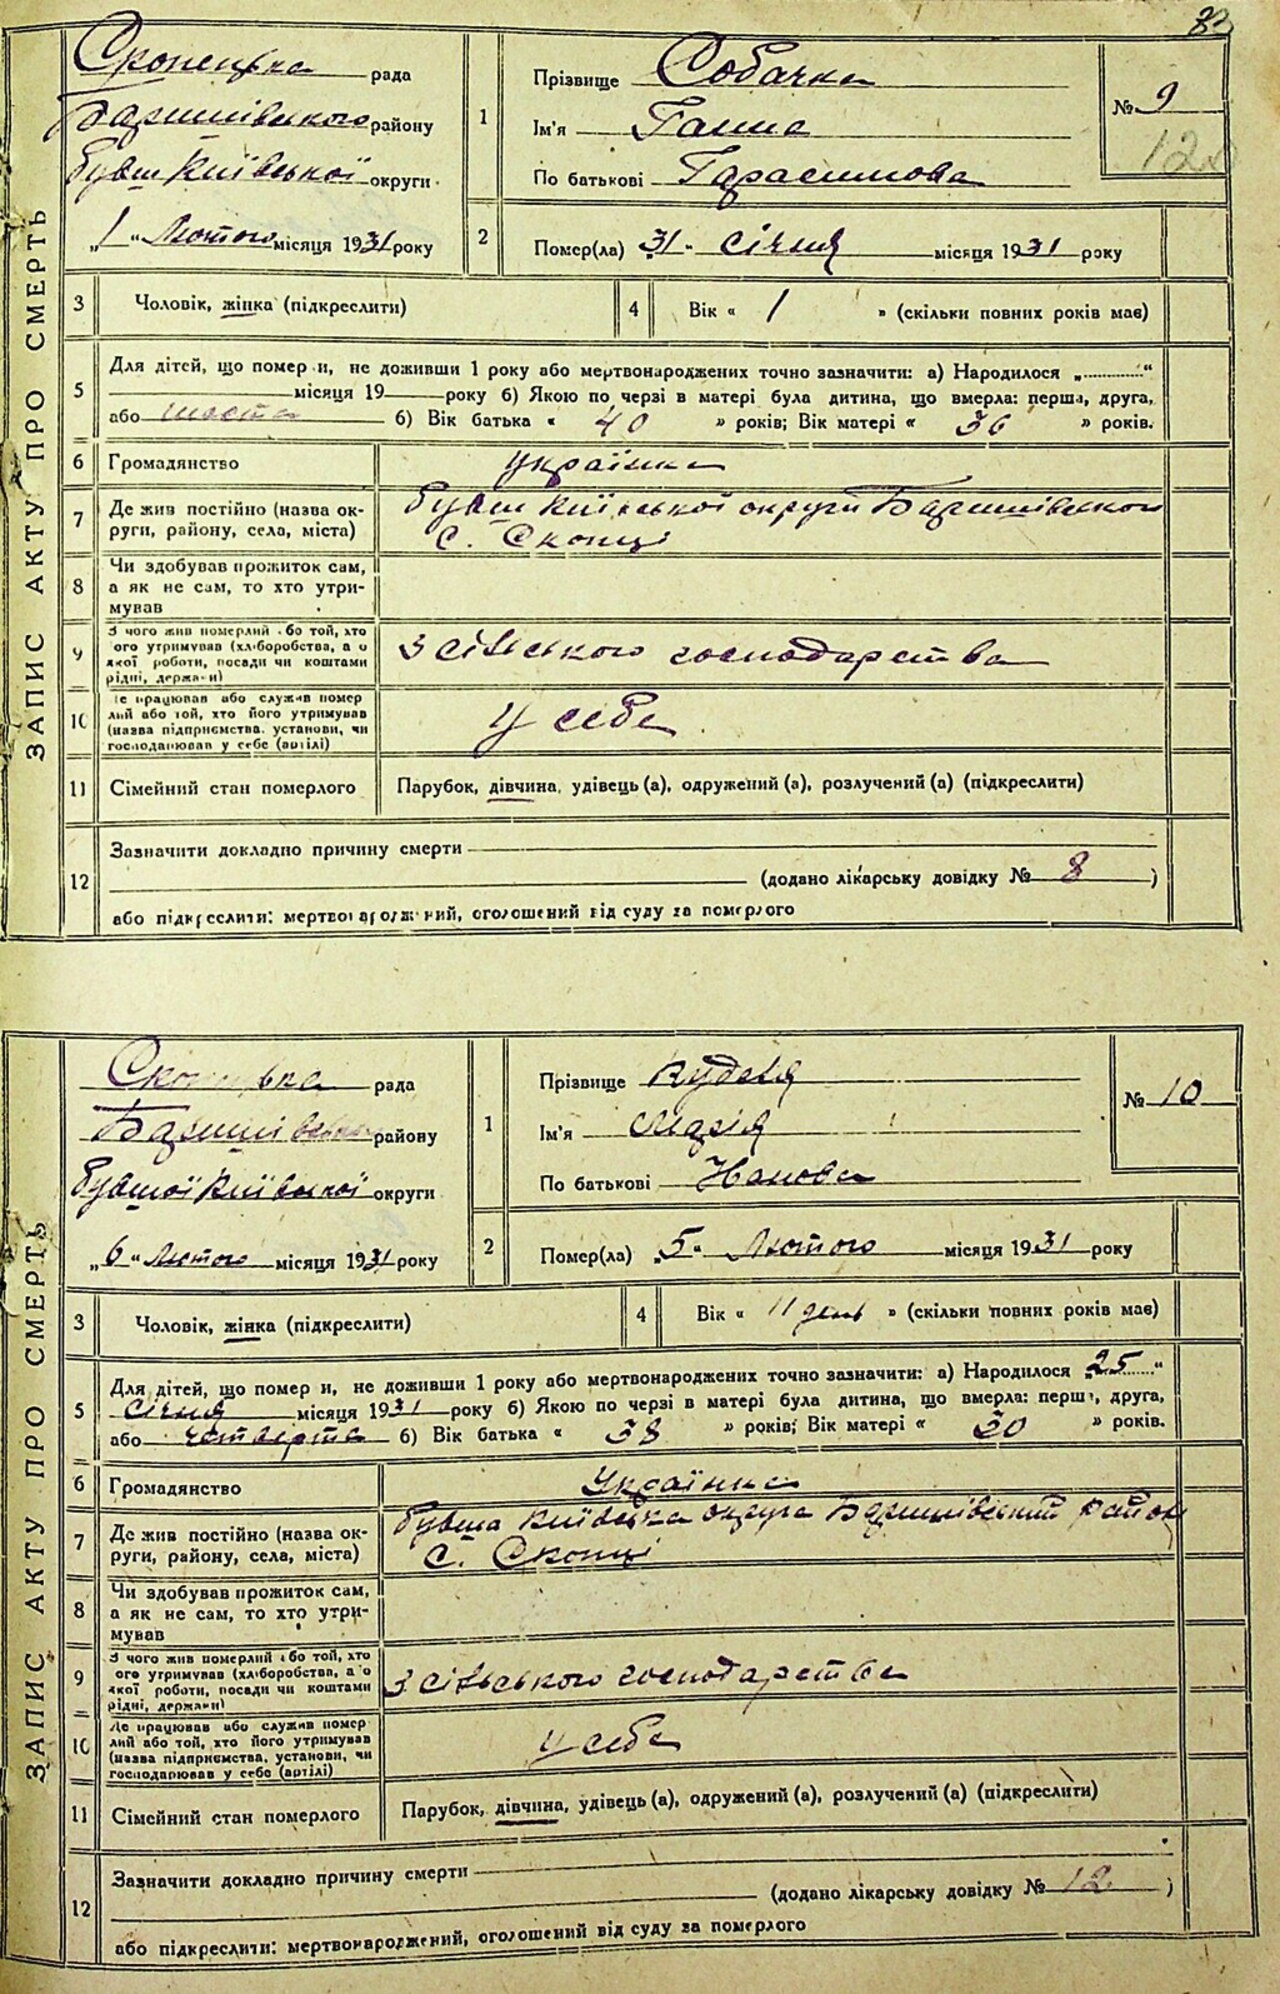 ЗАПИС АКТУ ПРО СМЕРТЬ
Скопецька рада
Баришівського району
бувш Київської округи
„1“ Лютого місяця 1931 року
1
Прізвище Собачка
Ім'я Ганна
По батькові Гарасимова
№ 9
120
2
Помер(ла) „31“ січня місяця 1931 року
3
Чоловік, жінка (підкреслити)
4
Вік « 1 » (скільки повних років має)
5
Для дітей, що помер и, не доживши 1 року або мертвонароджених точно зазначити: а) Народилося „ “
місяця 19 року б) Якою по черзі в матері була дитина, що вмерла: перша, друга,
або шоста б) Вік батька « 40 » років; Вік матері « 36 » років.
6
Громадянство
українка
7
Де жив постійно (назва ок-
руги, району, села, міста)
бувш Київської округи Баришівського
с. Скопці
8
Чи здобував прожиток сам,
а як не сам, то хто утри-
мував
9
З чого жив померлий або той, хто
ого утримував (хліборобства, а о
якої роботи, посади чи коштами
рідні, держави)
З сільського господарства
10
Де працював або служив помер
лий або той, хто його утримував
(назва підприємства, установи, чи
господарював у себе (артілі)
у себе
11
Сімейний стан померлого
Парубок, дівчина, удівець(а), одружений(а), розлучений(а) (підкреслити)
12
Зазначити докладно причину смерти
(додано лікарську довідку № 8 )
або підкреслити: мертвонароджений, оголошений від суду за померлого
ЗАПИС АКТУ ПРО СМЕРТЬ
Скопецька рада
Баришівського району
бувшої Київської округи
„6“ Лютого місяця 1931 року
1
Прізвище Кудея
Ім'я Марія
По батькові Іванова
№ 10
2
Помер(ла) „5“ Лютого місяця 1931 року
3
Чоловік, жінка (підкреслити)
4
Вік « 11 день » (скільки повних років має)
5
Для дітей, що помер и, не доживши 1 року або мертвонароджених точно зазначити: а) Народилося „25“
січня місяця 1931 року б) Якою по черзі в матері була дитина, що вмерла: перша, друга,
або четверта б) Вік батька « 38 » років; Вік матері « 30 » років.
6
Громадянство
Українка
7
Де жив постійно (назва ок-
руги, району, села, міста)
бувша Київська округа Баришівський район
с. Скопці
8
Чи здобував прожиток сам,
а як не сам, то хто утри-
мував
9
З чого жив померлий або той, хто
ого утримував (хліборобства, а о
якої роботи, посади чи коштами
рідні, держави)
З сільського господарства
10
Де працював або служив помер
лий або той, хто його утримував
(назва підприємства, установи, чи
господарював у себе (артілі)
у себе
11
Сімейний стан померлого
Парубок, дівчина, удівець(а), одружений(а), розлучений(а) (підкреслити)
12
Зазначити докладно причину смерти
(додано лікарську довідку № 12 )
або підкреслити: мертвонароджений, оголошений від суду за померлого